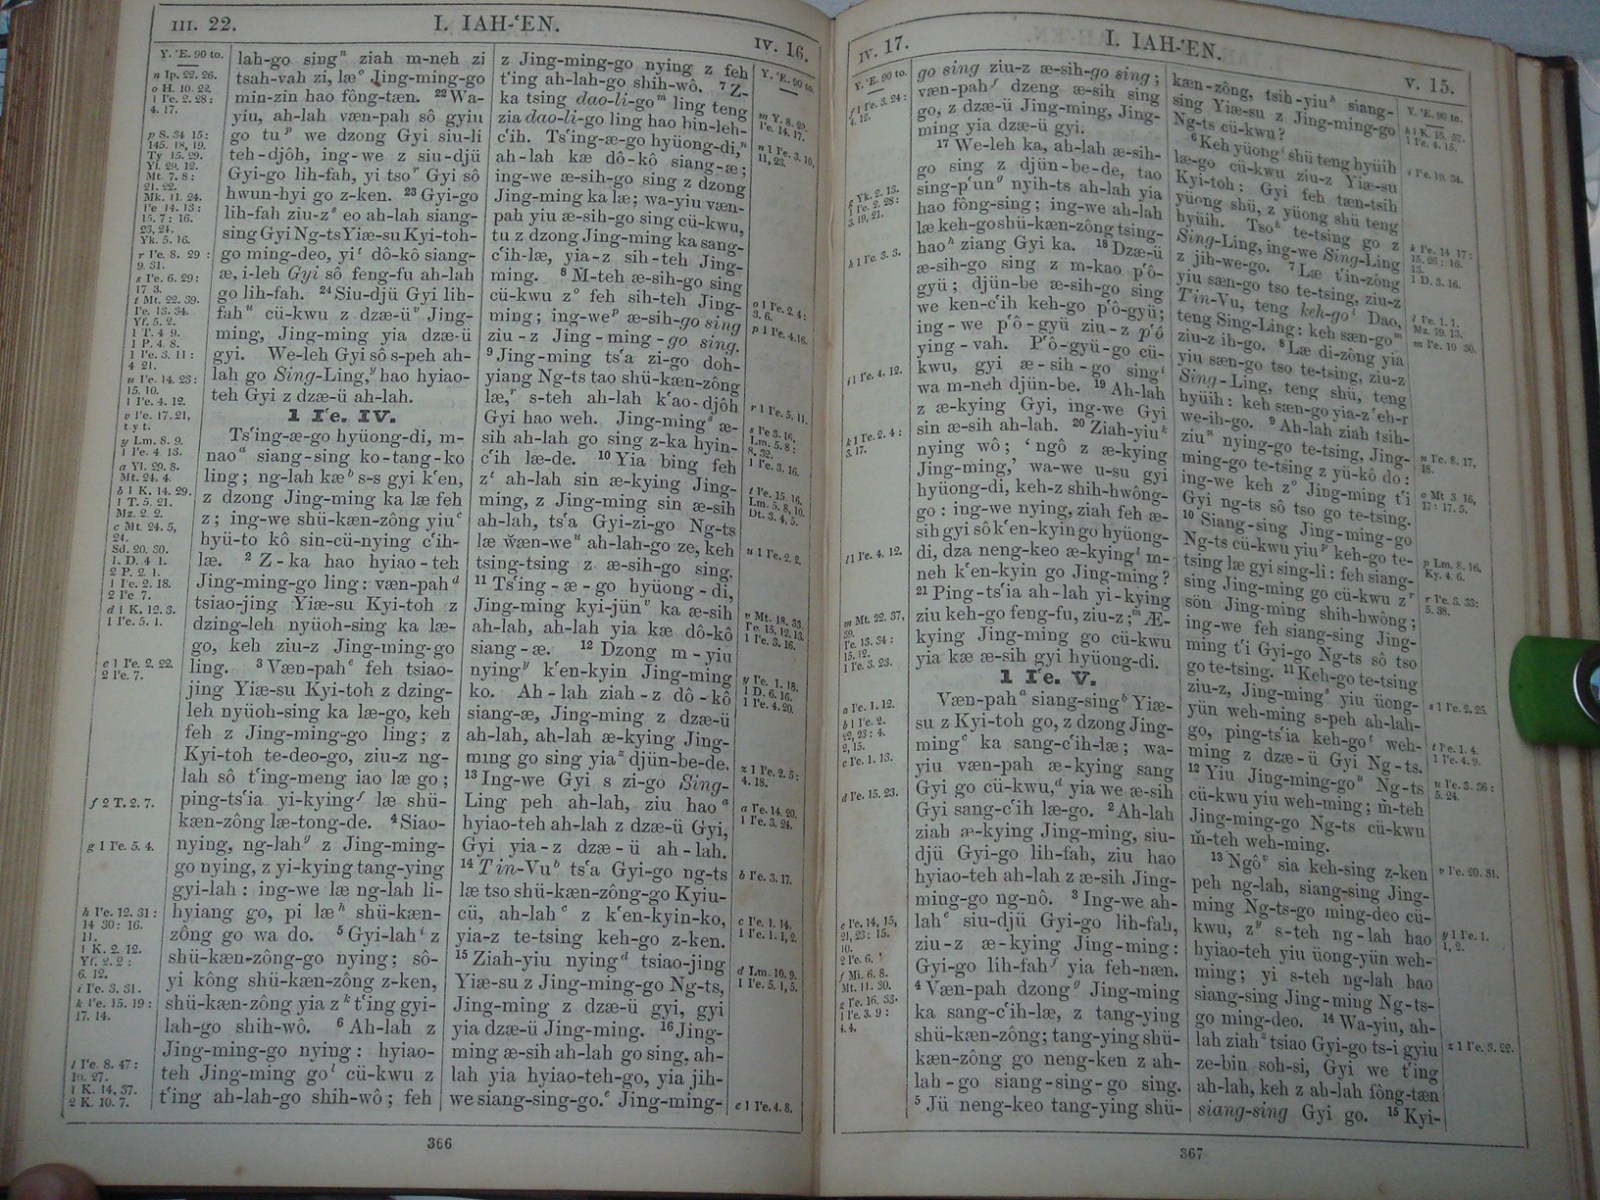 III. 22.
I. IAH-ʻEN.
IV. 16.
Y. ʻE. 90 to.
n Ip. 22. 26.
o H. 10. 22.
1 Iʻe. 2. 28:
4. 17.
p S. 34 15:
145. 18, 19.
Ty 15. 29.
Yi. 29. 12.
Mt. 7. 8:
21. 22.
Mk. 11. 24.
Iʻe 14. 13:
15. 7: 16.
23, 24.
Yk. 5. 16.
r Iʻe. 8. 29:
9. 31.
s Iʻe. 6. 29:
17 3.
t Mt. 22. 39.
Iʻe. 13. 34.
Yf. 5. 2.
1 T. 4 9.
1 P. 4. 8.
1 Iʻe. 3. 11:
4 21.
u Iʻe. 14. 23:
15. 10.
1 Iʻe. 4. 12.
v Iʻe. 17. 21,
t y t.
y Lm. 8. 9.
1 Iʻe. 4. 13.
a Yl. 29. 8.
Mt. 24. 4.
b 1 K. 14. 29.
1 T. 5. 21.
Mz. 2. 2.
c Mt. 24. 5,
24.
Sd. 20. 30.
1. D. 4 1.
2 P. 2. 1.
1 Iʻe. 2. 18.
2 Iʻe 7.
d 1 K. 12. 3.
1 Iʻe. 5. 1.
e 1 Iʻe. 2. 22.
2 Iʻe. 7.
f 2 T. 2. 7.
g 1 Iʻe. 5. 4.
h Iʻe. 12. 31:
14 30: 16.
11.
1 K. 2. 12.
Yf. 2. 2:
6. 12.
i Iʻe. 3. 31.
k Iʻe. 15. 19:
17. 14.
l Iʻe. 8. 47:
10. 27.
1 K. 14. 37.
2 K. 10. 7.
lah-go sing n ziah m-neh zi
tsah-vah zi, læ o Jing-ming-go
min-zin hao fông-tæn. 22 Wa-
yiu, ah-lah væn-pah sô gyiu
go tu p we dzong Gyi siu-li
teh-djôh, ing-we z siu-djü
Gyi-go lih-fah, yi tso r Gyi sô
hwun-hyi go z-ken. 23 Gyi-go
lih-fah ziu-z s eo ah-lah siang-
sing Gyi Ng-ts Yiæ-su Kyi-toh-
go ming-deo, yi t dô-kô siang-
æ, i-leh Gyi sô feng-fu ah-lah
go lih-fah. 24 Siu-djü Gyi lih-
fah u cü-kwu z dzæ-ü v Jing-
ming, Jing-ming yia dzæ-ü
gyi. We-leh Gyi sô s-peh ah-
lah go Sing-Ling, y hao hyiao-
teh Gyi z dzæ-ü ah-lah.
1 Iʻe. IV.
Tsʻing-æ-go hyüong-di, m-
nao a siang-sing ko-tang-ko
ling; ng-lah kæ b s-s gyi kʻen,
z dzong Jing-ming ka læ feh
z; ing-we shü-kæn-zông yiu c
hyü-to kô sin-cü-nying cʻih-
læ. 2 Z-ka hao hyiao-teh
Jing-ming-go ling: væn-pah d
tsiao-jing Yiæ-su Kyi-toh z
dzing-leh nyüoh-sing ka læ-
go, keh ziu-z Jing-ming-go
ling. 3 Væn-pah e feh tsiao-
jing Yiæ-su Kyi-toh z dzing-
leh nyüoh-sing ka læ-go, keh
feh z Jing-ming-go ling; z
Kyi-toh te-deo-go, ziu-z ng-
lah sô tʻing-meng iao læ go;
ping-tsʻia yi-kying f læ shü-
kæn-zông læ-tong-de. 4 Siao-
nying, ng-lah g z Jing-ming-
go nying, z yi-kying tang-ying
gyi-lah: ing-we læ ng-lah li-
hyiang go, pi læ h shü-kæn-
zông go wa do. 5 Gyi-lah i z
shü-kæn-zông-go nying; sô-
yi kông shü-kæn-zông z-ken,
shü-kæn-zông yia z k tʻing gyi-
lah-go shih-wô. 6 Ah-lah z
Jing-ming-go nying: hyiao-
teh Jing-ming go l cü-kwu z
tʻing ah-lah-go shih-wô; feh
z Jing-ming-go nying z feh
tʻing ah-lah-go shih-wô. 7 Z-
ka tsing dao-li-go m ling teng
zia dao-li-go ling hao bin-leh-
cʻih. Tsʻing-æ-go hyüong-di, n
ah-lah kæ dô-kô siang-æ;
ing-we æ-sih-go sing z dzong
Jing-ming ka læ; wa-yiu væn-
pah yiu æ-sih-go sing cü-kwu,
tu z dzong Jing-ming ka sang-
cʻih-læ, yia-z sih-teh Jing-
ming. 8 M-teh æ-sih-go sing
cü-kwu z o feh sih-teh Jing-
ming; ing-we p æ-sih-go sing
ziu-z Jing-ming-go sing.
9 Jing-ming tsʻa zi-go doh-
yiang Ng-ts tao shü-kæn-zông
læ, r s-teh ah-lah kʻao-djôh
Gyi hao weh. Jing-ming s æ-
sih ah-lah go sing z-ka hyin-
cʻih læ-de. 10 Yia bing feh
z t ah-lah sin æ-kying Jing-
ming, z Jing-ming sin æ-sih
ah-lah, tsʻa Gyi-zi-go Ng-ts
læ wæn-we u ah-lah-go ze, keh
tsing-tsing z æ-sih-go sing.
11 Tsʻing-æ-go hyüong-di,
Jing-ming kyi-jün v ka æ-sih
ah-lah, ah-lah yia kæ dô-kô
siang-æ. 12 Dzong m-yiu
nying y kʻen-kyin Jing-ming
ko. Ah-lah ziah-z dô-kô
siang-æ, Jing-ming z dzæ-ü
ah-lah, ah-lah æ-kying Jing-
ming go sing yia z djün-be-de.
13 Ing-we Gyi s zi-go Sing-
Ling peh ah-lah, ziu hao a
hyiao-teh ah-lah z dzæ-ü Gyi,
Gyi yia-z dzæ-ü ah-lah.
14 Tin-Vu b tsʻa Gyi-go ng-ts
læ tso shü-kæn-zông-go Kyiu-
cü, ah-lah c z kʻen-kyin-ko,
yia-z te-tsing keh-go z-ken.
15 Ziah-yiu nying d tsiao-jing
Yiæ-su z Jing-ming-go Ng-ts,
Jing-ming z dzæ-ü gyi, gyi
yia dzæ-ü Jing-ming. 16 Jing-
ming æ-sih ah-lah go sing, ah-
lah yia hyiao-teh-go, yia jih-
we siang-sing-go. e Jing-ming-
Y. ʻE. 90 to.
m Y. 8. 20.
Iʻe. 14. 17.
n 1 Iʻe. 3. 10,
11, 23.
o 1 Iʻe. 2. 4:
3. 6.
p 1 Iʻe. 4. 16.
r 1 Iʻe. 5. 11.
s Iʻe 3. 16.
Lm. 5. 8:
8. 32.
1 Iʻe. 3. 16.
t Iʻe. 15. 16.
Lm. 5. 8, 10.
Dt. 3. 4, 5.
u 1 Iʻe. 2. 2.
v Mt. 18. 33.
Iʻe. 15. 12, 13.
1 Iʻe. 3. 16.
y Iʻe. 1. 18.
1 D. 6. 16.
1 Iʻe. 4. 20.
z 1 Iʻe. 2. 5:
4. 18.
a Iʻe. 14. 20.
1 Iʻe. 3. 24.
b Iʻe. 3. 17.
c Iʻe. 1. 14.
1 Iʻe. 1. 1, 2.
d Lm. 10. 9.
1 Iʻe. 5. 1, 5.
e 1 Iʻe. 4. 8.
366
IV. 17.
I. IAH-ʻEN.
V. 15.
Y. ʻE. 90 to.
f 1 Iʻe. 3. 24:
4. 12.
g Yk. 2. 13.
1 Iʻe. 2. 28:
3. 19, 21.
h 1 Iʻe. 3. 3.
i 1 Iʻe. 4. 12.
k 1 Iʻe. 2. 4:
3. 17.
l 1 Iʻe. 4. 12.
m Mt. 22. 37,
39.
Iʻe. 13. 34:
15. 12.
1 Iʻe. 3. 23.
a Iʻe. 1. 12.
b 1 Iʻe. 2.
22, 23: 4.
2, 15.
c Iʻe. 1. 13.
d Iʻe. 15. 23.
e Iʻe. 14, 15,
21, 23: 15.
10.
2 Iʻe. 6.
f Mi. 6. 8.
Mt. 11. 30.
g Iʻe. 16. 33.
1 Iʻe. 3. 9:
4. 4.
go sing ziu-z æ-sih-go sing;
væn-pah f dzeng æ-sih sing
go, z dzæ-ü Jing-ming, Jing-
ming yia dzæ-ü gyi.
17 We-leh ka, ah-lah æ-sih-
go sing z djün-be-de, tao
sing-pʻun g nyih-ts ah-lah yia
hao fông-sing; ing-we ah-lah
læ keh-go shü-kæn-zông tsing-
hao h ziang Gyi ka. 18 Dzæ-ü
æ-sih-go sing z m-kao pʻô-
gyü; djün-be æ-sih-go sing
we ken-cʻih keh-go pʻô-gyü;
ing-we pʻô-gyü ziu-z pʻô
ying-vah. Pʻô-gyü-go cü-
kwu, gyi æ-sih-go sing i
wa m-neh djün-be. 19 Ah-lah
z æ-kying Gyi, ing-we Gyi
sin æ-sih ah-lah. 20 Ziah-yiu k
nying wô; ʻngô z æ-kying
Jing-ming,ʼ wa-we u-su gyi
hyüong-di, keh-z shih-hwông-
go: ing-we nying, ziah feh æ-
sih gyi sô kʻen-kyin go hyüong-
di, dza neng-keo æ-kying l m-
neh kʻen-kyin go Jing-ming?
21 Ping-tsʻia ah-lah yi-kying
ziu keh-go feng-fu, ziu-z; m Æ-
kying Jing-ming go cü-kwu
yia kæ æ-sih gyi hyüong-di.
1 Iʻe. V.
Væn-pah a siang-sing b Yiæ-
su z Kyi-toh go, z dzong Jing-
ming c ka sang-cʻih-læ; wa-
yiu væn-pah æ-kying sang
Gyi go cü-kwu, d yia we æ-sih
Gyi sang-cʻih læ-go. 2 Ah-lah
ziah æ-kying Jing-ming, siu-
djü Gyi-go lih-fah, ziu hao
hyiao-teh ah-lah z æ-sih Jing-
ming-go ng-nô. 3 Ing-we ah-
lah e siu-djü Gyi-go lih-fah,
ziu-z æ-kying Jing-ming:
Gyi-go lih-fah f yia feh-næn.
4 Væn-pah dzong g Jing-ming
ka sang-cʻih-læ, z tang-ying
shü-kæn-zông; tang-ying shü-
kæn-zông go neng-ken z ah-
lah-go siang-sing-go sing.
5 Jü neng-keo tang-ying shü-
kæn-zông, tsih-yiu h siang-
sing Yiæ-su z Jing-ming-go
Ng-ts cü-kwu?
6 Keh yüong i shü teng hyüih
læ-go cü-kwu ziu-z Yiæ-su
Kyi-toh: Gyi feh tæn-tsih
yüong shü, z yüong shü teng
hyüih. Tso k te-tsing go z
Sing-Ling, ing-we Sing-Ling
z jih-we-go. 7 Læ tʻin-zông
yiu sæn-go tso te-tsing, ziu-z
Tin-Vu, teng keh-go l Dao,
teng Sing-Ling: keh sæn-go m
ziu-z ih-go. 8 Læ di-zông yia
yiu sæn-go tso te-tsing, ziu-z
Sing-Ling, teng shü, teng
hyüih: keh sæn-go yia-z ʻeh-r
we-ih-go. 9 Ah-lah ziah tsih-
ziu n nying-go te-tsing, Jing-
ming-go te-tsing z yü-kô do:
ing-we keh z o Jing-ming tʻi
Gyi ng-ts sô tso go te-tsing.
10 Siang-sing Jing-ming-go
Ng-ts cü-kwu yiu p keh-go te-
tsing læ gyi sing-li: feh siang-
sing Jing-ming go cü-kwu z r
sön Jing-ming shih-hwông;
ing-we feh siang-sing Jing-
ming tʻi Gyi-go Ng-ts sô tso
go te-tsing. 11 Keh-go te-tsing
ziu-z, Jing-ming s yiu üong-
yün weh-ming s-peh ah-lah-
go, ping-tsʻia keh-go t weh-
ming z dzæ-ü Gyi Ng-ts.
12 Yiu Jing-ming-go u Ng-ts
cü-kwu yiu weh-ming; m-teh
Jing-ming-go Ng-ts cü-kwu
m-teh weh-ming.
13 Ngô v sia keh-sing z-ken
peh ng-lah, siang-sing Jing-
ming Ng-ts-go ming-deo cü-
kwu, z y s-teh ng-lah hao
hyiao-teh yiu üong-yün weh-
ming; yi s-teh ng-lah hao
siang-sing Jing-miug Ng-ts-
go ming-deo. 14 Wa-yiu, ah-
lah ziah z tsiao Gyi-go ts-i gyiu
ze-bin soh-si, Gyi we tʻing
ah-lah, keh z ah-lah fông-tæn
siang-sing Gyi go. 15 Kyi-
Y. ʻE. 90 to.
h 1 K. 15. 57.
1 Iʻe. 4. 15.
i Iʻe. 19. 34.
k Iʻe. 14 17:
15. 26: 16.
13.
1 D. 3. 16.
l Iʻe. 1. 1.
Mz. 19. 13.
m Iʻe. 10 30.
n Iʻe. 8. 17,
18.
o Mt 3 16,
17: 17. 5.
p Lm. 8. 16.
Ky. 4. 6.
r Iʻe. 3. 33:
5. 38.
s 1 Iʻe. 2. 25.
t Iʻe. 1. 4.
1 Iʻe. 4. 9.
u Iʻe. 3. 36:
5. 24.
v Iʻe. 20. 31.
y 1 Iʻe. 1.
1, 2.
z 1 Iʻe. 3. 22.
367